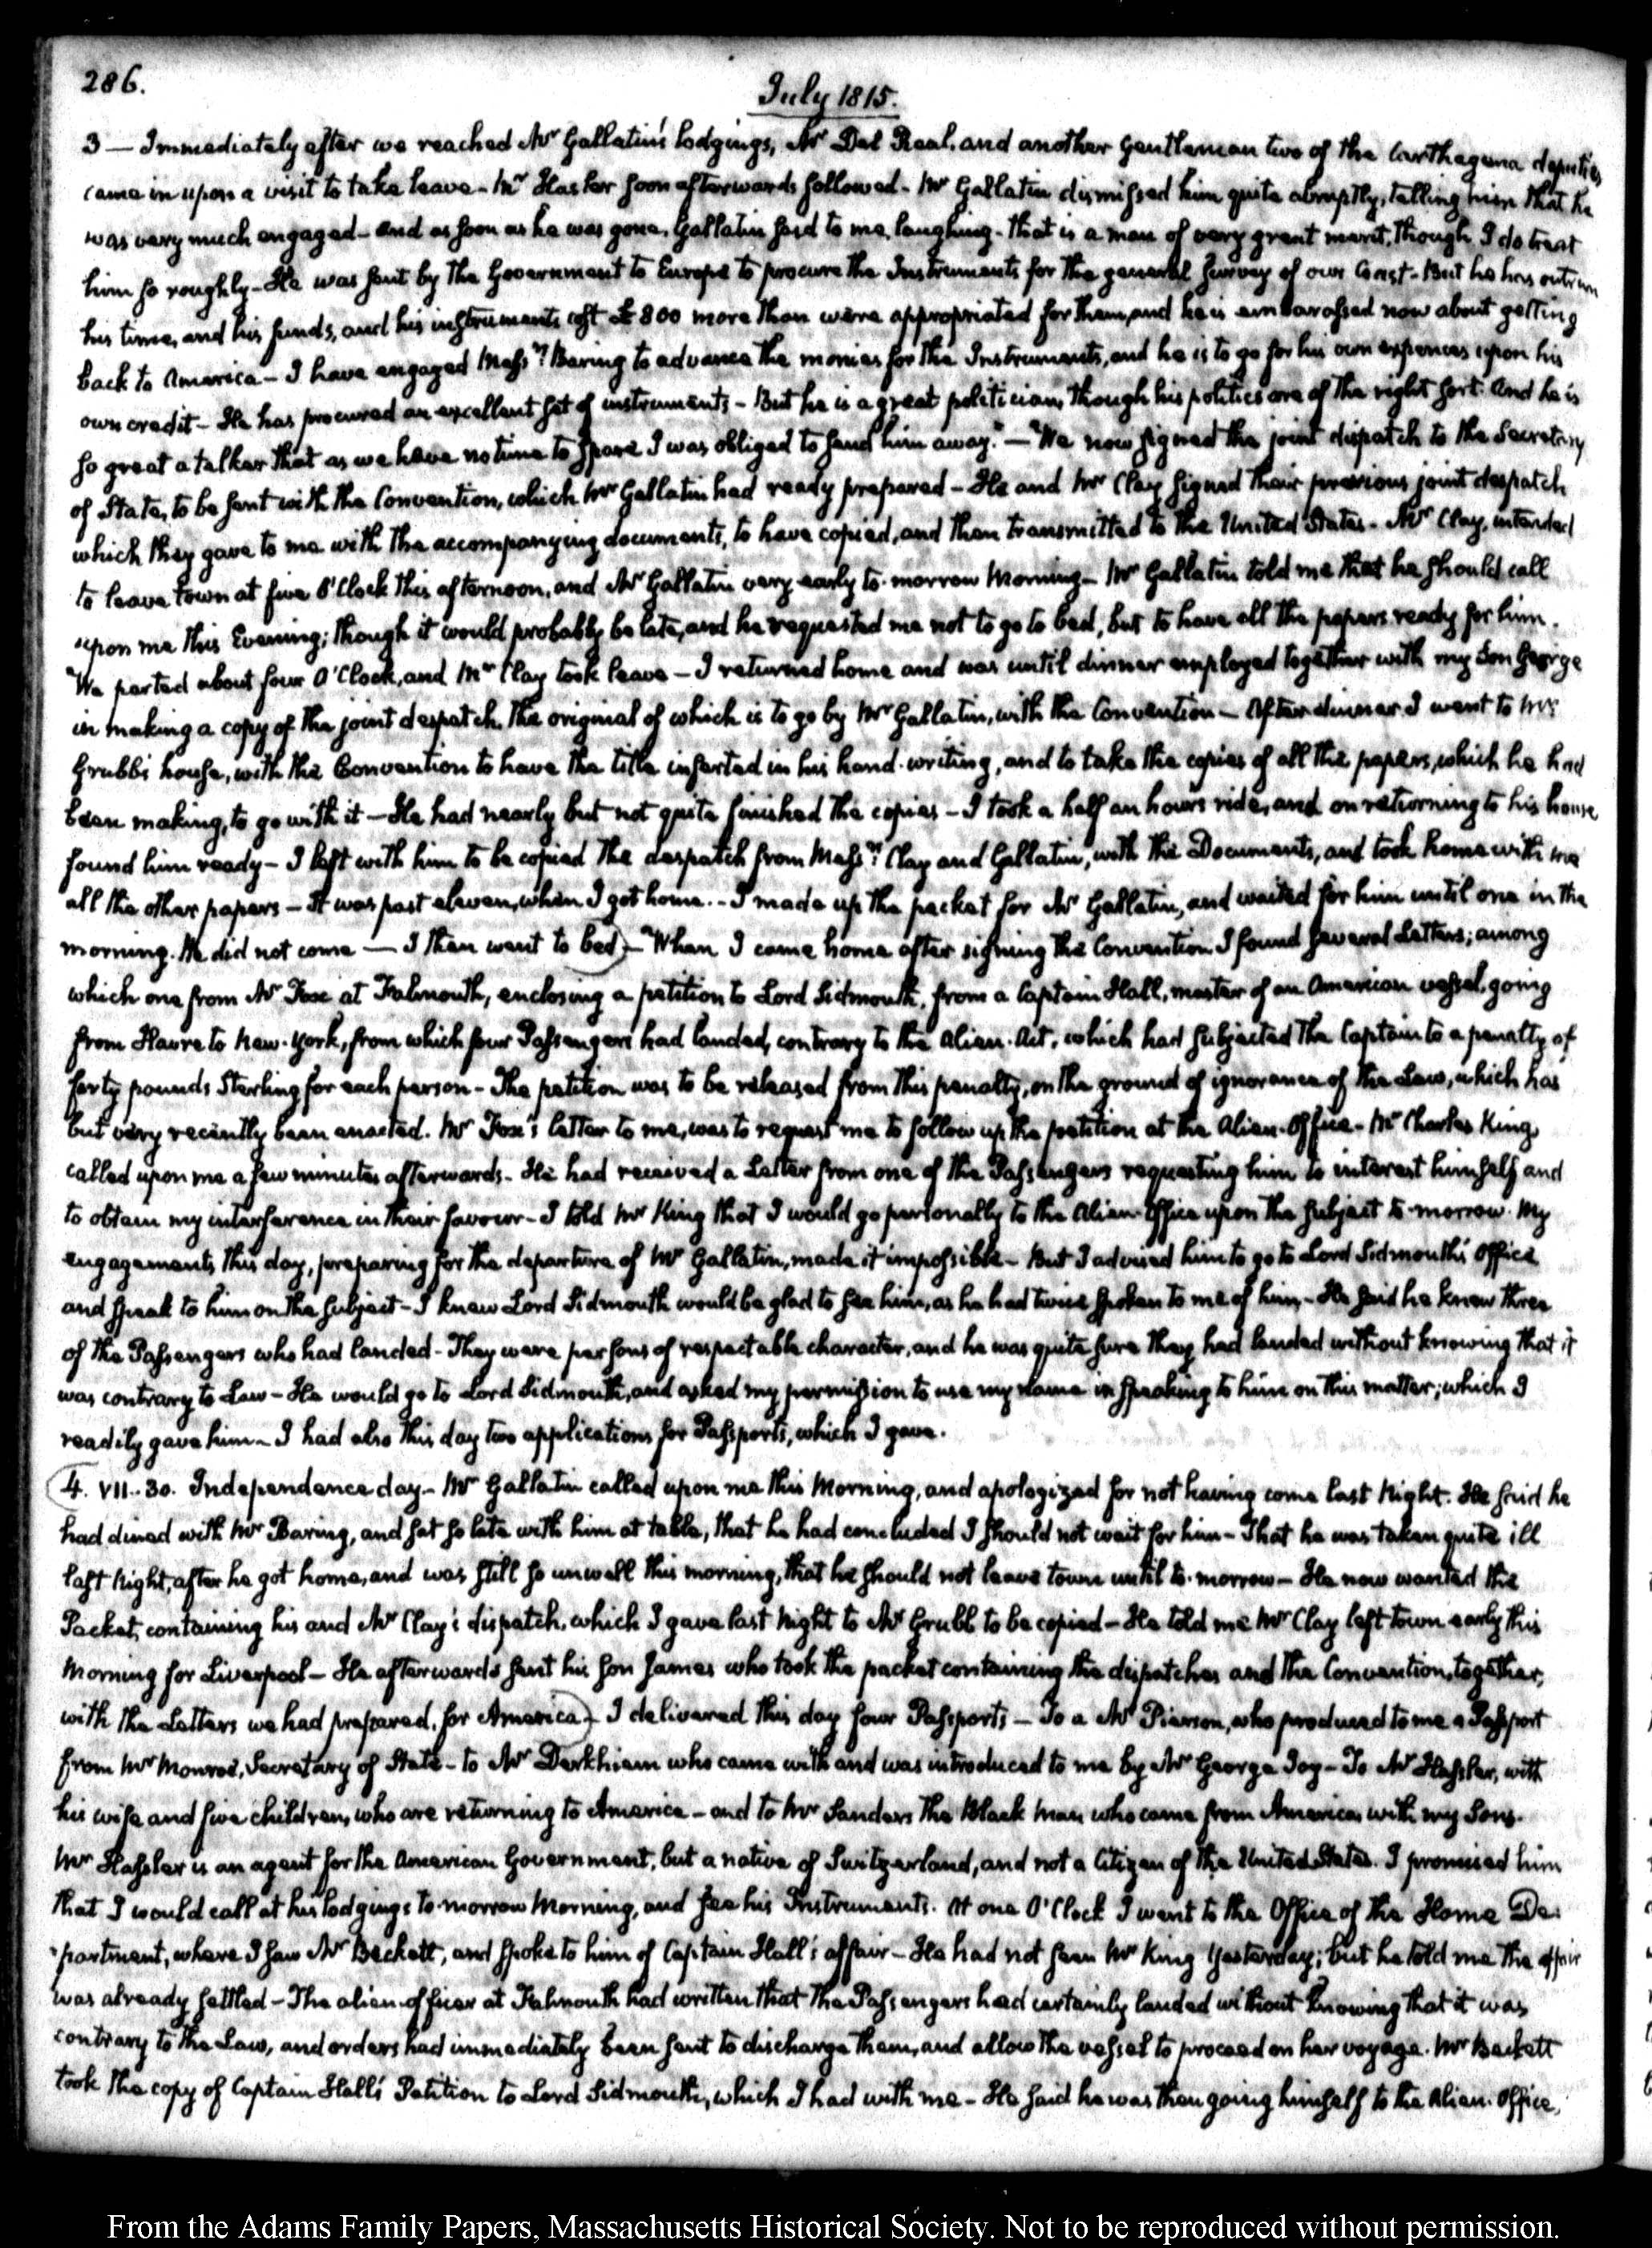 286.
July 1815.
3 — Immediately after we reached Mr Gallatin's lodgings, Mr Del Real, and another Gentleman two of the Carthagena deputies
came in upon a visit to take leave - Mr Hasler soon afterwards followed - Mr Gallatin dismissed him quite abruptly, telling him that he
was very much engaged - and as soon as he was gone, Gallatin said to me, laughing - That is a man of very great merit, though I do treat
him so roughly - He was sent by the Government to Europe to procure the Instruments for the general survey of our Coast - But he has outrun
his time, and his funds, and his instruments cost £800 more than were appropriated for them, and he is embarassed now about getting
back to America - I have engaged Messrs Baring to advance the monies for the Instruments, and he is to go for his own expences upon his
own credit - He has procured an excellent set of instruments - But he is a great politician, though his politics are of the right sort. And he is
so great a talker that as we have no time to spare I was obliged to send him away." — We now signed the joint dispatch to the Secretary
of State, to be sent with the Convention, which Mr Gallatin had ready prepared - He and Mr Clay signed their previous joint despatch
which they gave to me with the accompanying documents, to have copied, and then transmitted to the United States - Mr Clay, intended
to leave town at five O'Clock this afternoon, and Mr Gallatin very early to-morrow Morning - Mr Gallatin told me that he should call
upon me this Evening; though it would probably be late, and he requested me not to go to bed, but to have all the papers ready for him.
We parted about four O'Clock, and Mr Clay took leave - I returned home and was until dinner employed together with my Son George
in making a copy of the joint despatch, the original of which is to go by Mr Gallatin, with the Convention - After dinner I went to Mr
Grubb's house, with the Convention to have the title inserted in his hand-writing, and to take the copies of all the papers, which he had
been making, to go with it - He had nearly but not quite finished the copies - I took a half an hour's ride, and on returning to his house
found him ready - I left with him to be copied the despatch from Messrs Clay and Gallatin, with the Documents, and took home with me
all the other papers - It was past eleven, when I got home. - I made up the packet for Mr Gallatin, and waited for him until one in the
morning. He did not come — I then went to bed) - When I came home after signing the Convention I found several Letters; among
which one from Mr Fox at Falmouth, enclosing a petition to Lord Sidmouth, from a Captain Hall, master of an American vessel, going
from Havre to New-York, from which four Passengers had landed, contrary to the Alien-Act, which had subjected the Captain to a penalty of
forty pounds Sterling for each person - The petition was to be released from this penalty, on the ground of ignorance of the Law, which has
but very recently been enacted. Mr Fox's letter to me, was to request me to follow up the petition at the Alien-Office - Mr Charles King,
called upon me a few minutes afterwards - He had received a Letter from one of the Passengers requesting him to interest himself and
to obtain my interference in their favour - I told Mr King that I would go personally to the Alien-Office upon the subject to-morrow. My
engagements this day, preparing for the departure of Mr Gallatin, made it impossible - But I advised him to go to Lord Sidmouth's Office
and speak to him on the subject - I knew Lord Sidmouth would be glad to see him, as he had twice spoken to me of him - He said he knew three
of the Passengers who had landed - They were persons of respectable character, and he was quite sure they had landed without knowing that it
was contrary to Law - He would go to Lord Sidmouth, and asked my permission to use my name in speaking to him on this matter; which I
readily gave him - I had also this day two applications for Passports, which I gave.
4. VII.30. Independence day - Mr Gallatin called upon me this Morning, and apologized for not having come last Night. He said he
had dined with Mr Baring, and sat so late with him at table, that he had concluded I should not wait for him - That he was taken quite ill
last Night, after he got home, and was still so unwell this morning, that he should not leave town until to-morrow - He now wanted the
Packet, containing his and Mr Clay's dispatch, which I gave last Night to Mr Grubb to be copied - He told me Mr Clay left town early this
Morning for Liverpool - He afterwards sent his Son James who took the packet containing the dispatches and the Convention, together,
with the Letters we had prepared, for America) - I delivered this day four Passports - To a Mr Pierson, who produced to me a Passport
from Mr Monroe, Secretary of State - to Mr Derkhiem who came with and was introduced to me by Mr George Joy - To Mr Hassler, with
his wife and five children, who are returning to America - and to Mr Sanders the Black Man who came from America, with my Sons.
Mr Hassler is an agent for the American Government, but a native of Switzerland, and not a Citizen of the United States. I promised him
that I would call at his lodgings to-morrow Morning, and see his Instruments. At one O'Clock I went to the Office of the Home De-
partment, where I saw Mr Beckett, and spoke to him of Captain Hall's affair - He had not seen Mr King yesterday; but he told me the affair
was already settled - The alien-officer at Falmouth had written that the Passengers had certainly landed without knowing that it was
contrary to the Law, and orders had immediately been sent to discharge them, and allow the vessel to proceed on her voyage. Mr Beckett
took the copy of Captain Hall's Petition to Lord Sidmouth, which I had with me - He said he was then going himself to the Alien-Office,
From the Adams Family Papers, Massachusetts Historical Society. Not to be reproduced without permission.